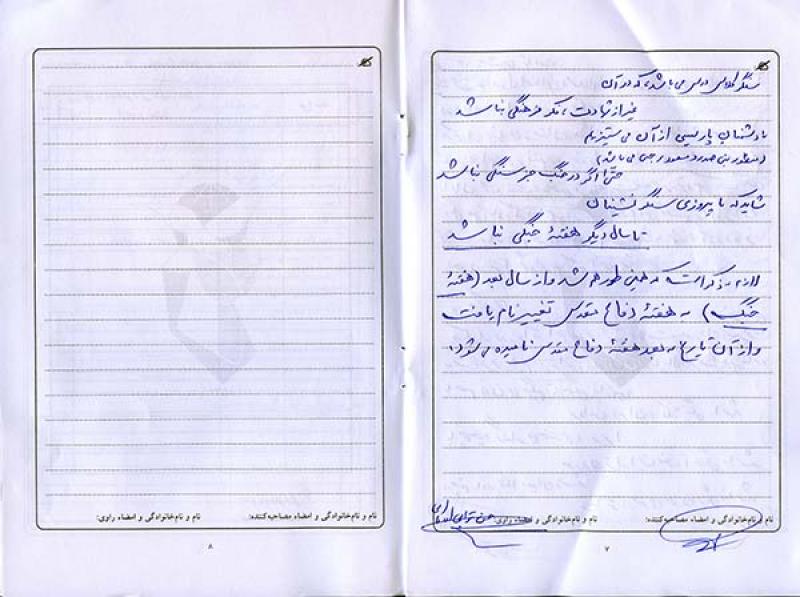 سنگر کلاس درس می باشد، که در آن
غیر از شهادت، مگر فرهنگی نباشد
با دشمنان پارسی از آن می ستیزیم
(منظور بنی صدر و مسعود رجوی می باشد)
حتی اگر در جنگ جز سنگی نباشد
شاید که با پیروزی سنگرنشینان
تا سال دیگر هفتهٔ جنگی نباشد
لازم به ذکر است که همین طور هم شد و از سال بعد (هفتهٔ
جنگ) به هفتهٔ دفاع مقدس تغییر نام یافت
و از آن تاریخ به بعد هفتهٔ دفاع مقدس نامیده می شود.
نام و نام‌خانوادگی و امضاء مصاحبه‌کننده: نام و نام‌خانوادگی و امضاء راوی:
۷
نام و نام‌خانوادگی و امضاء مصاحبه‌کننده: نام و نام‌خانوادگی و امضاء راوی:
۸